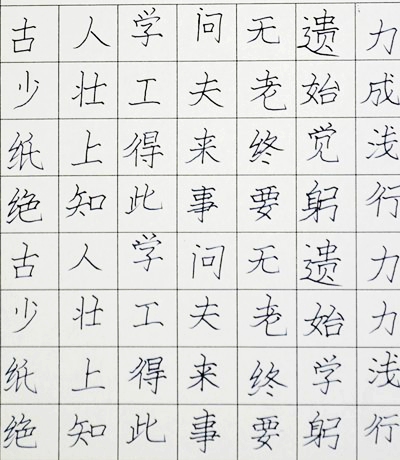 古人学问无遗力
少壮工夫老始成
纸上得来终觉浅
绝知此事要躬行
古人学问无遗力
少壮工夫老始力
纸上得来终学浅
绝知此事要躬行